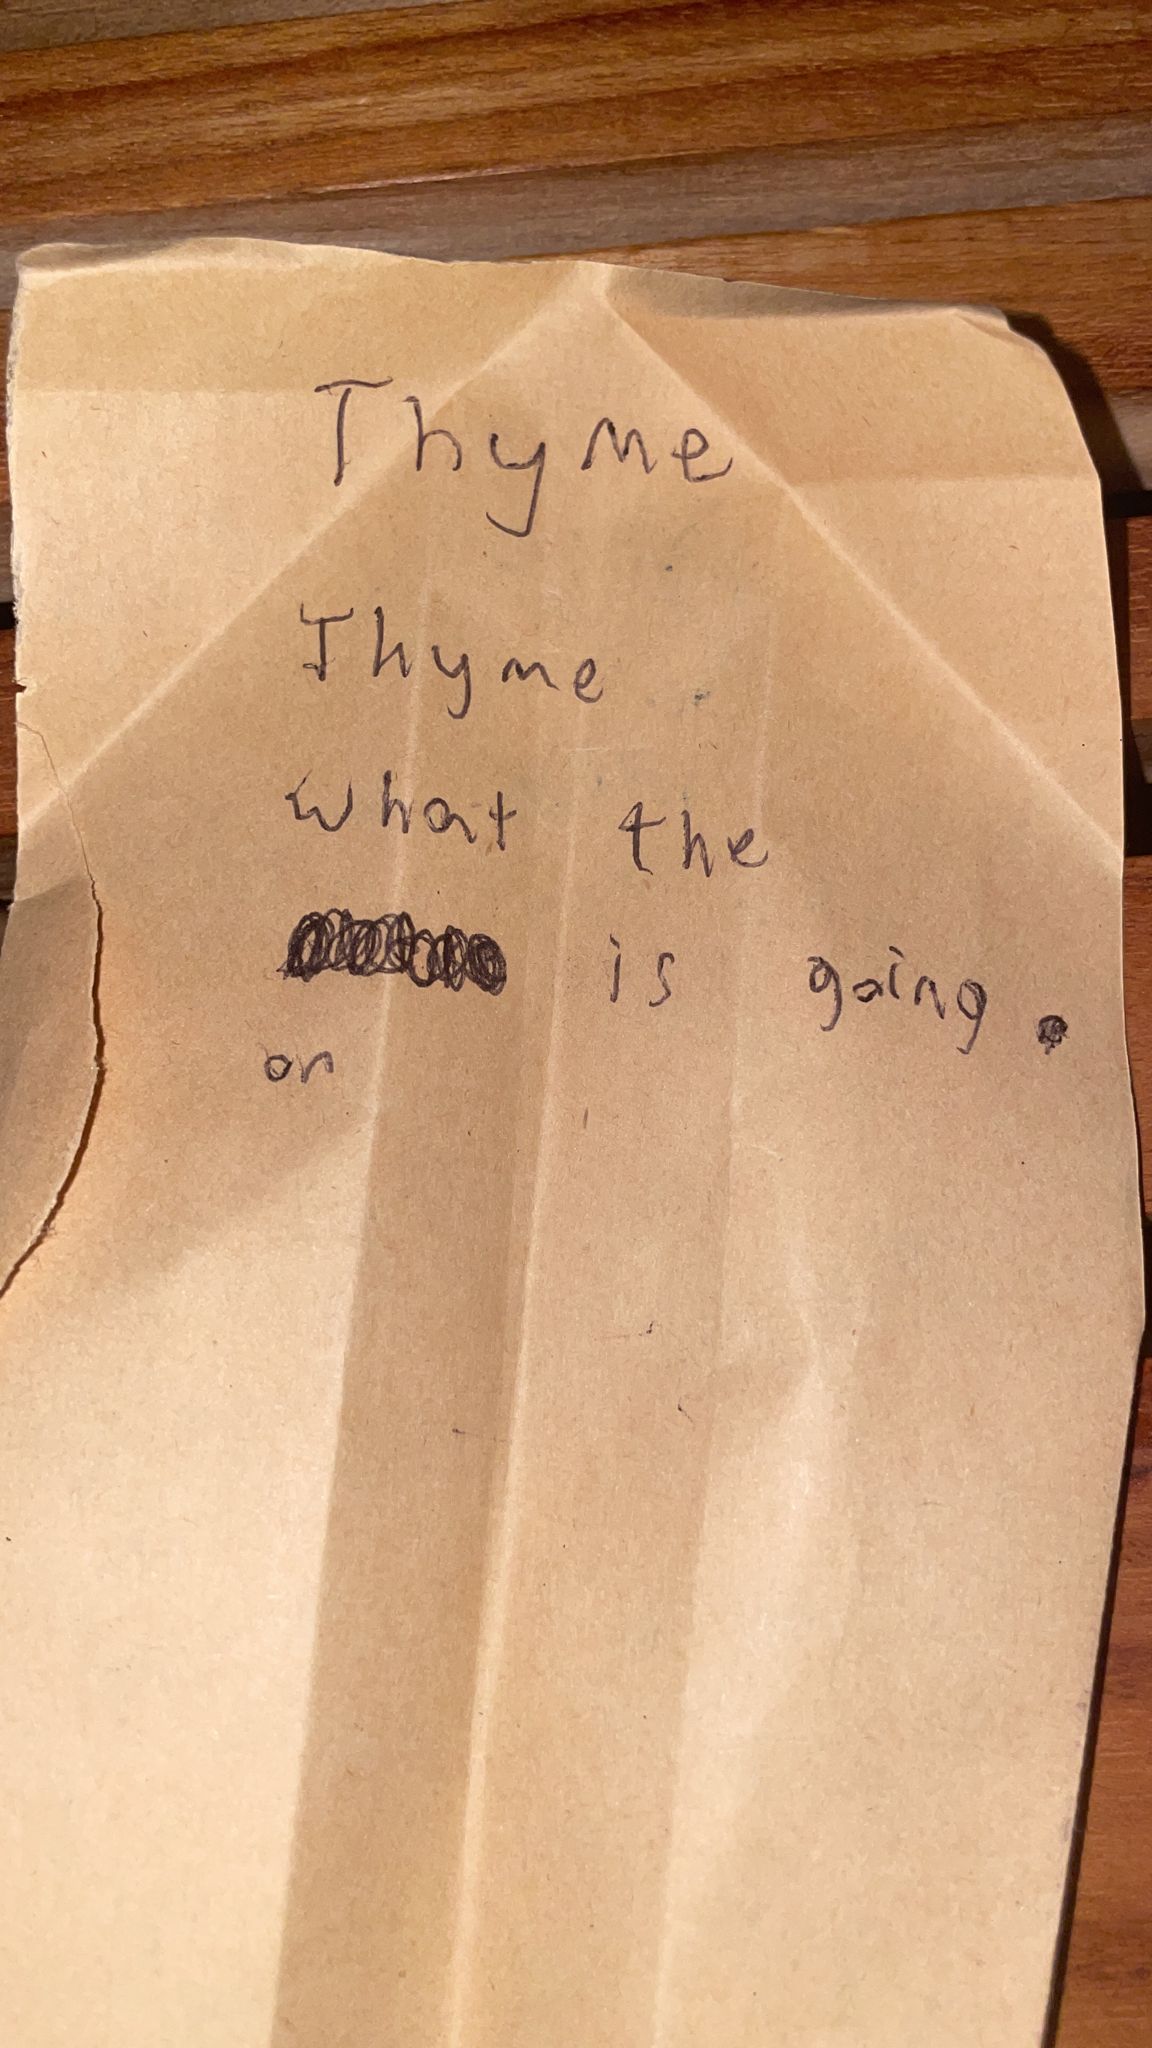 Thyme
Thyme
what the
is going.
on